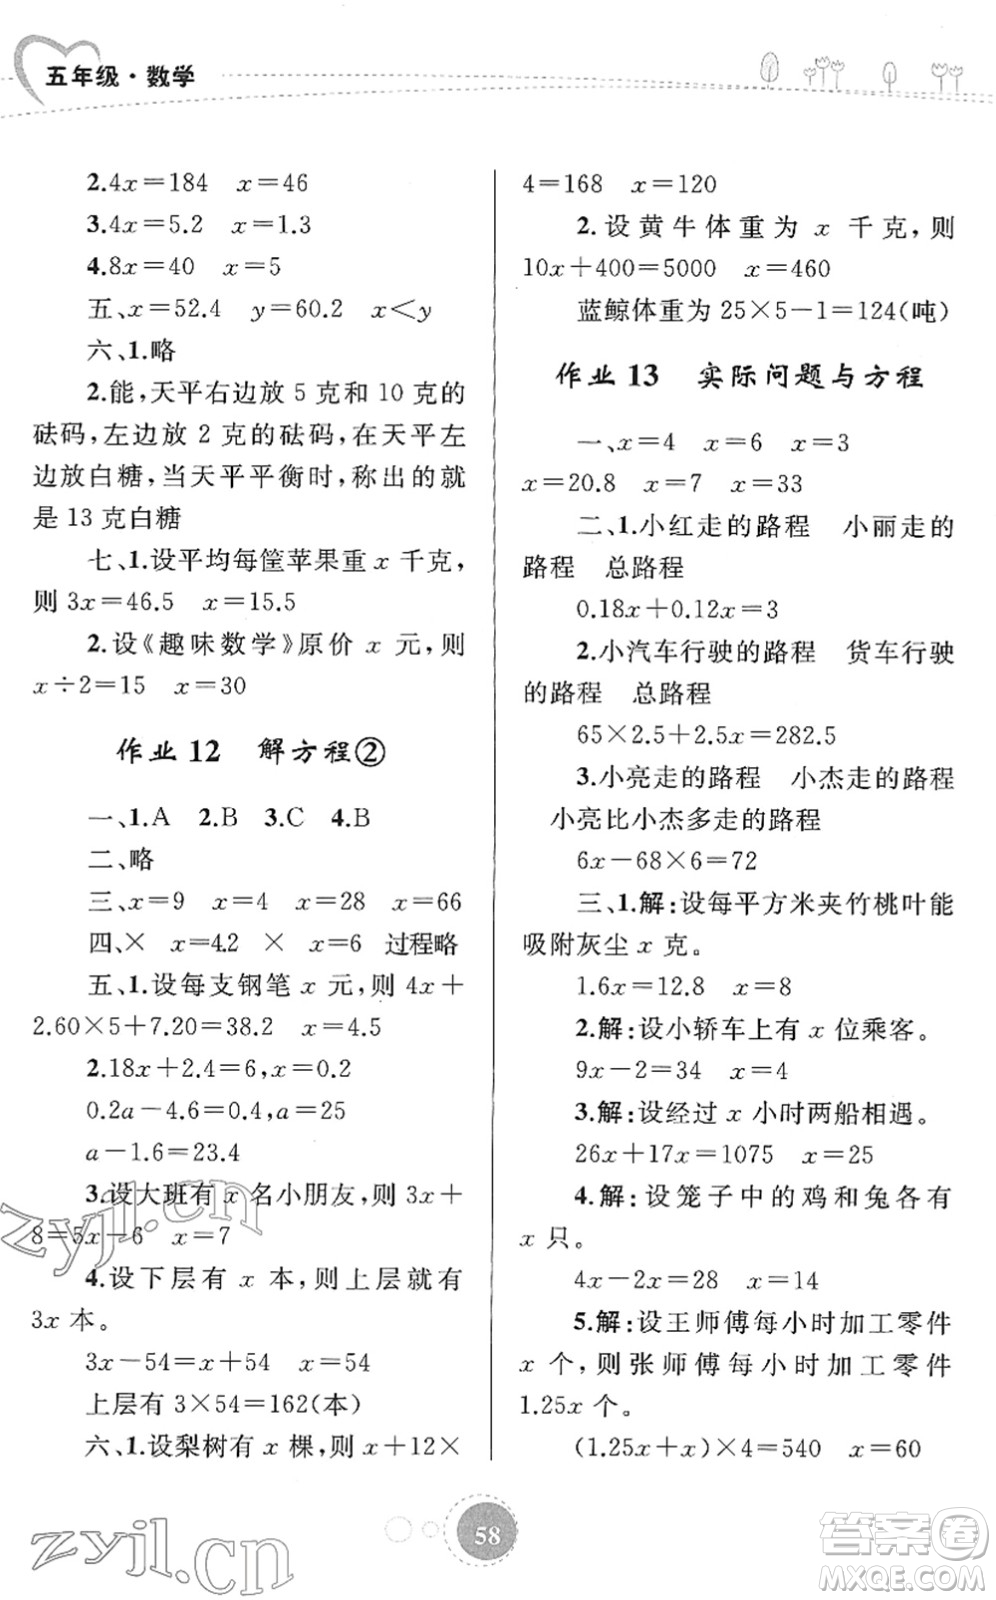 五年级·数学
2.4x=184 x=46
3.4x=5.2 x=1.3
4.8x=40 x=5
五、x=52.4 y=60.2 x<y
六、1.略
2.能,天平右边放 5 克和 10 克的
砝码,左边放 2 克的砝码,在天平左
边放白糖,当天平平衡时,称出的就
是 13 克白糖
七、1.设平均每筐苹果重 x 千克,
则 3x=46.5 x=15.5
2.设《趣味数学》原价 x 元,则
x÷2=15 x=30
作业 12 解方程②
一、1.A 2.B 3.C 4.B
二、略
三、x=9 x=4 x=28 x=66
四、× x=4.2 × x=6 过程略
五、1.设每支钢笔 x 元,则 4x+
2.60×5+7.20=38.2 x=4.5
2.18x+2.4=6,x=0.2
0.2a-4.6=0.4,a=25
a-1.6=23.4
3.设大班有 x 名小朋友,则 3x+
8=5x-6 x=7
4.设下层有 x 本,则上层就有
3x 本。
3x-54=x+54 x=54
上层有 3×54=162(本)
六、1.设梨树有 x 棵,则 x+12×
4=168 x=120
2.设黄牛体重为 x 千克,则
10x+400=5000 x=460
蓝鲸体重为 25×5-1=124(吨)
作业 13 实际问题与方程
一、x=4 x=6 x=3
x=20.8 x=7 x=33
二、1.小红走的路程 小丽走的
路程 总路程
0.18x+0.12x=3
2.小汽车行驶的路程 货车行驶
的路程 总路程
65×2.5+2.5x=282.5
3.小亮走的路程 小杰走的路程
小亮比小杰多走的路程
6x-68×6=72
三、1.解:设每平方米夹竹桃叶能
吸附灰尘 x 克。
1.6x=12.8 x=8
2.解:设小轿车上有 x 位乘客。
9x-2=34 x=4
3.解:设经过 x 小时两船相遇。
26x+17x=1075 x=25
4.解:设笼子中的鸡和兔各有
x 只。
4x-2x=28 x=14
5.解:设王师傅每小时加工零件
x 个,则张师傅每小时加工零件
1.25x 个。
(1.25x+x)×4=540 x=60
58
zyjl.cn
zyjl.cn
答案圈
MXQE.COM